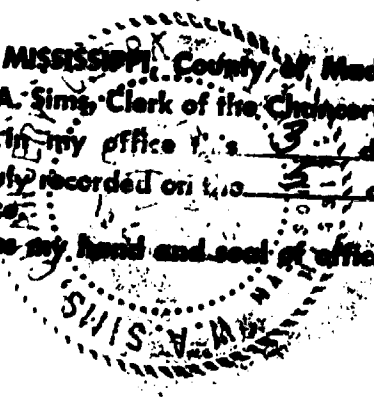 MISSISSIPPI, County of Mad
A. Sims, Clerk of the Chancer
in my office this 3 d
uly recorded on the 5
my hand and seal of offic
W. A. SIMS